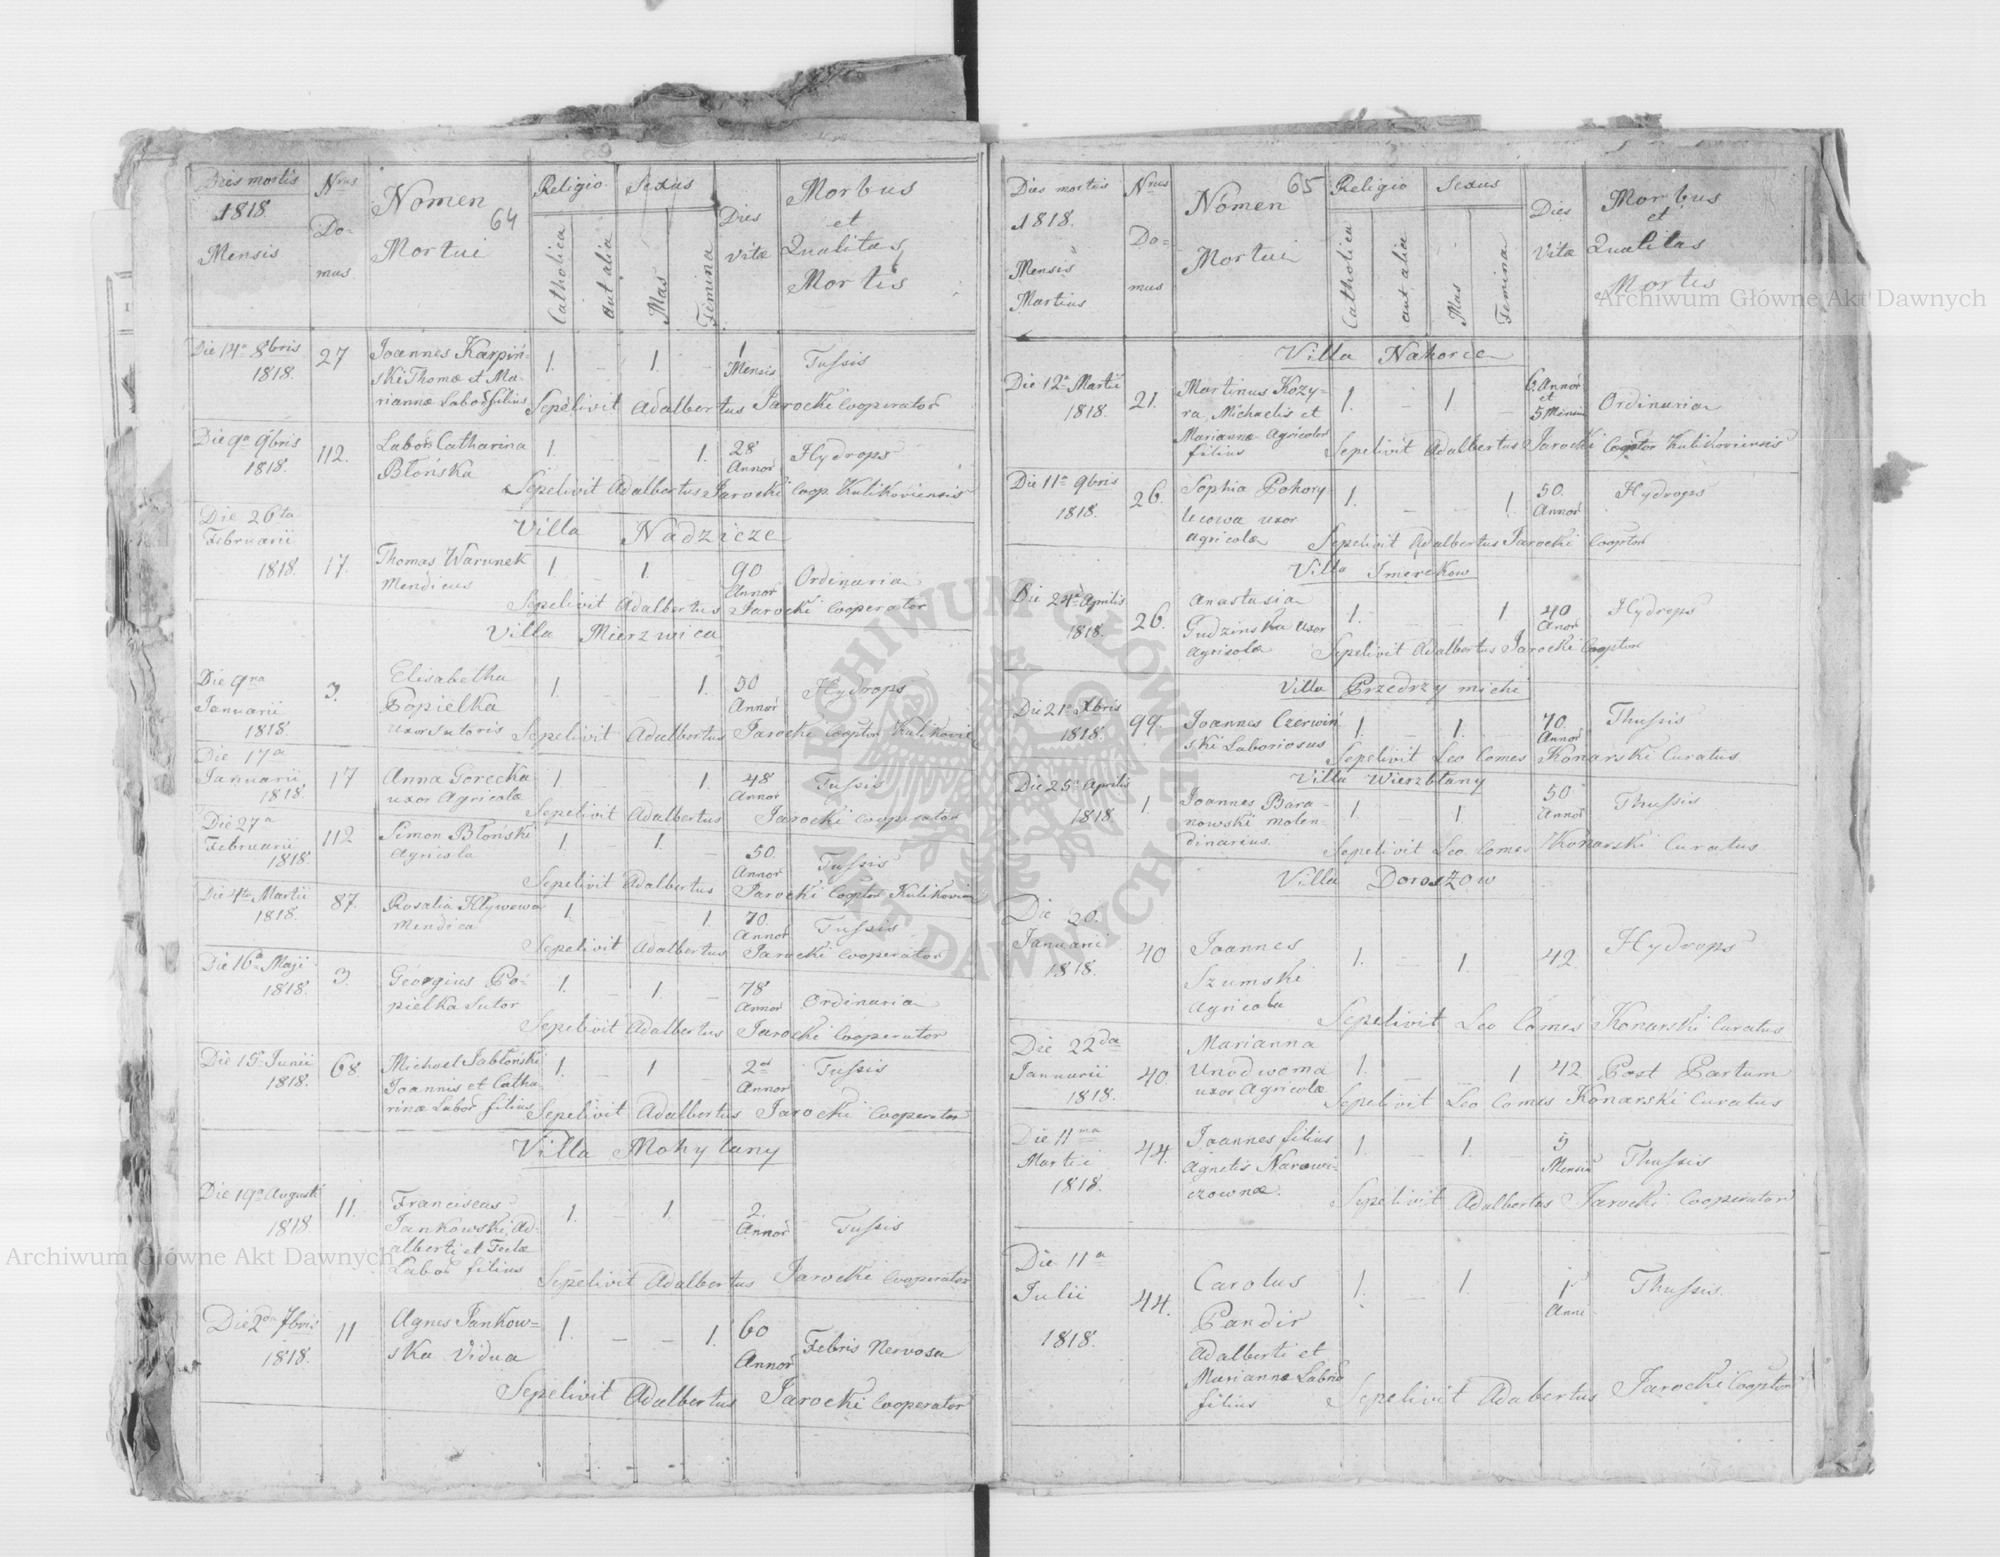 Dies mortis
1818.
Mensis
Nrus
Do-
mus.
Nomen
64
Mortui
Religio
Catholica
aut alia
Sexus
Mas
Femina
Dies
vitæ
Morbus
et
Qualitas
Mortis
Die 14a 8bris
1818.
27
Joannes Karpiń-
ski Thomæ et Ma-
riannæ Labor filius
1. – 1.
1
Mensis
Tussis
Sepelivit Adalbertus Jarocki Cooperator
Die 9a 9bris
1818.
112.
Labor Catharina
Błońska
1. – – 1.
28
Annor
Hydrops
Sepelivit Adalbertus Jarocki Coop. Kulikoviensis
Villa Nadzicze
Die 26ta
Februarii
1818.
17.
Thomas Warunek
Mendicus
1. – 1.
90
Annor
Ordinaria
Sepelivit Adalbertus Jarocki Cooperator
Villa Mierzwica
Die 9na
Januarii
1818.
3.
Elisabetha
Popielka
uxor Sutoris
1. – – 1.
50
Annor
Hydrops
Sepelivit Adalbertus Jarocki Cooptor
Die 17a
Januarii
1818.
17
Anna Gorecka
uxor Agricolæ
1. – – 1.
48
Annor
Tussis
Sepelivit Adalbertus Jarocki Cooperator
Die 27a
Februarii
1818
112
Simon Błoński
Agricola
1. – 1. –
50.
Annor
Tussis
Sepelivit Adalbertus Jarocki Cooptor
Die 4ta Martii
1818.
87.
Rosalia
Mendica
1. – – 1.
70.
Annor
Tussis
Sepelivit Adalbertus Jarocki Cooperator
Die 16a Maji
1818.
3.
Georgius Po-
pielka Sutor
1. – 1. –
78
Annor
Ordinaria
Sepelivit Adalbertus Jarocki Cooperator
Die 15a Junii
1818.
68
Michael Jabłoński
Joannis et Catha
rinæ Labor filius
1. – 1 –
2
Annor
Tussis
Sepelivit Adalbertus Jarocki Cooperator
Villa Mohylany
Die 19a Augusti
1818
11.
Franciscus
Jankowski, Ad-
alberti et Teclæ
Labor filius
1. – 1. –
2.
Annor
Tussis
Sepelivit Adalbertus Jarocki Cooperator
Die 2da 7bris
1818.
11
Agnes Jankow=
ska Vidua
1. – – 1.
60
Annor
Febris Nervosa
Sepelivit Adalbertus Jarocki Cooperator
Dies mortis
1818.
Mensis
Martius
Nrus
Do=
mus
Nomen
65
Mortui
Religio
Catholica
aut alia
Sexus
Mas
Femina
Dies
Vitæ
Morbus
et
Qualitas
Mortis
Villa Nahorce
Die 12a Martii
1818.
21.
Martinus Kozy-
ra, Michaelis et
Mariannæ Agricolor
filius
1. – 1. –
6. Annor
et
5 Mensiu
Ordinaria
Sepelivit Adalbertus Jarocki Cooptor Kulikoviensis
Die 11a 9bris
1818.
26.
Sophia Pohory
lecowa uxor
agricolæ
1. – – 1.
50.
Annor
Hydrops
Sepelivit Adalbertus Jarocki Cooptor
Villa Smereków
Die 24a Aprilis
1818.
26.
Anastasia
Gudzinska uxor
Agricolæ
1. – – 1
40
Anor
Hydrops
Sepelivit Adalbertus Jarocki Cooptor
Villa Przedrzymichi
Die 21a Xbris
1818.
99.
Joannes Czerwiń
ski Laboriosus
1. – 1. –
70.
Annor
Thussis
Sepelivit Leo Comes Konarski Curatus
Villa Wierzblany
Die 25a Aprilis
1818.
1.
Joannes Bara-
nowski molen-
dinarius.
1. – 1. –
50
Annor
Thussis
Sepelivit Leo Comes Konarski Curatus
Villa Doroszow
Die 20.
Januarii
1818.
40
Joannes
Szumski
Agricola
1. – 1.
42.
Hydrops
Sepelivit Leo Comes Konarski Curatus
Die 22da
Januarii
1818.
40.
Marianna
uxor Agricolæ
1. – – 1
42
Post Partum
Sepelivit Leo Comes Konarski Curatus
Die 11ma
Martii
1818.
44.
Joannes filius
Agnetis Narowi-
czownæ.
1. – 1. –
5
Mensiu
Thussis
Sepelivit Adalbertus Jarocki Cooperator
Die 11a
Julii
1818.
44.
Carolus
Pandir
Adalberti et
Mariannæ Labor
filius
1. – 1. –
1
Anni
Thussis.
Sepelivit Adabertus Jarocki Cooptor
Archiwum Główne Akt Dawnych
Archiwum Główne Akt Dawnych
ARCHIWUM GŁÓWNE AKT DAWNYCH